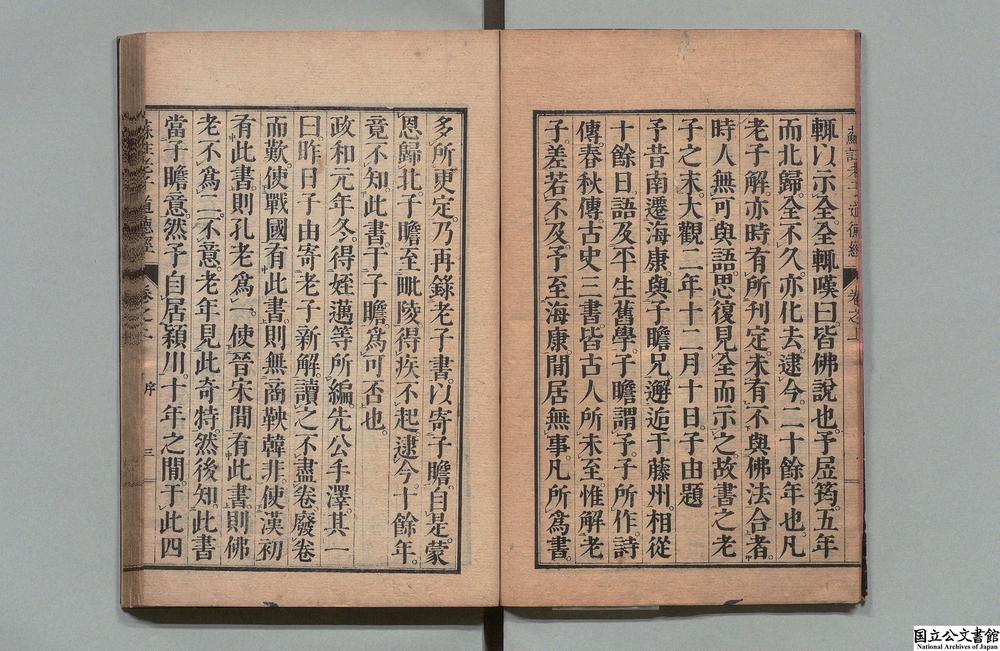 輒以示全全輒嘆曰皆佛說也予居筠五年
而北歸全不久亦化去逮今二十餘年也凡
老子解亦時有所刊定未有不與佛法合者
時人無可與語思復見全而示之故書之老
子之末大觀二年十二月十日子由題
予昔南遷海康與子瞻兄邂逅于藤州相從
十餘日語及平生舊學子瞻謂予子所作詩
傳春秋傳古史三書皆古人所未至惟解老
子差若不及予至海康閒居無事凡所爲書
多所更定乃再錄老子書以寄子瞻自是蒙
恩歸北子瞻至毗陵得疾不起逮今十餘年
竟不知此書于子瞻爲可否也
政和元年冬得姪邁等所編先公手澤其一
曰昨日子由寄老子新解讀之不盡卷廢卷
而歎使戰國有此書則無商鞅韓非使漢初
有此書則孔老爲一使晉宋閒有此書則佛
老不爲二不意老年見此奇特然後知此書
當子瞻意然予自居潁川十年之閒于此四
道德經
序
三
国立公文書館
National Archives of Japan